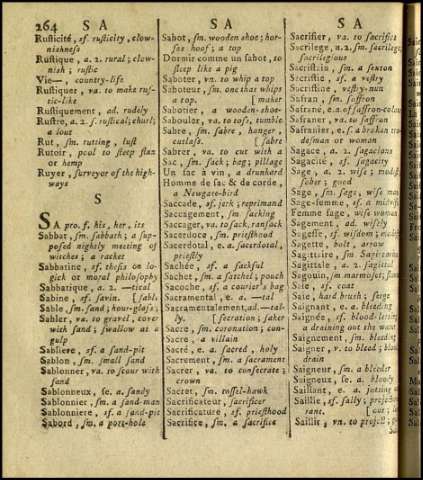 264 S A
S A
S A
Rusticité, sf. rusticity, clow-
nishness
Rustique, a. 2. rural; clow-
nish; rustic
Vie—, country-life
Rustiquer, va. to make rus-
tic-like
Rustiquement, ad. rudely
Rustre, a. 2. s. rustical; churl;
a lout
Rut, sm. rutting, lust
Rutoir, pool to steep flax
or hemp
Ruyer, surveyor of the high-
ways
S
SA pro. f. his, her, its
Sabbat, sm. sabbath; a sup-
posed nightly meeting of
witches; a racket
Sabbatine, sf. thesis on lo-
gick or moral philosophy
Sabbatique, a. 2. —tical
Sabine, sf. savin. [sabl.
Sable, sm. sand; hour-glass;
Sabler, va. to gravel, cover
with sand; swallow at a
gulp
Sabliere, sf. a sand-pit
Sablon, sm. small sand
Sablonner, va. to scour with
sand
Sablonneux, se. a. sandy
Sablonnier, sm. a sand-man
Sablonniere, sf. a sand-pit
Sabord, sm. a port-hole
Sabot, sm. wooden shoe; hor-
ses hoof; a top
Dormir comme un sabot, to
sleep like a pig
Saboter, va. to whip a top
Saboteur, sm. one that whips
a top. [maker
Sabotier, a wooden-shoe-
Sabouler, va. to toss, tumble
Sabre, sm. sabre, hanger,
cutlass. [sabre
Sabrer, va. to cut with a
Sac, sm. sack; bag; pillage
Un sac à vin, a drunkard
Homme de sac & de corde,
a Newgate-bird
Saccade, sf. jerk; reprimand
Saccagement, sm sacking
Saccager, va. to sack, ransack
Sacerdoce, sm. priesthood
Sacerdotal, e. a. sacerdotal,
priestly
Sachée, sf. a sackful
Sachet, sm. a satchel; pouch
Sacoche, sf. a courier's bag
Sacramental, e. a. —tal
Sacramentalement, ad. —tal-
ly. [secration; saker
Sacre, sm. coronation; con-
Sacre, a villain
Sacré, e. a. sacred, holy
Sacrement, sm. a sacrament
Sacrer, va. to consecrate;
crown
Sacret, sm. tossel-hawk
Sacrificateur, sacrificer
Sacrificature, sf. priesthood
Sacrifice, sm. a sacrifice
Sacrifier, va. to sacrifice
Sacrilege, a. 2, sm. sacrilege,
sacrilegious
Sacristain, sm. a sexton
Sacristie, sf. a vestry
Sacristine, vestry-nun
Safran, sm. saffron
Safrané, e. a. of saffron-colou
Safraner, va. to saffron
Safranier, e. s. a broken tra-
desman or woman
Sagace, a. 2. sagacious
Sagacité, sf. sagacity
Sage, a. 2. wise; modest
sober; good
Sage, sm. sage, wise man
Sage-femme, sf. a midwife
Femme sage, wise woman
Sagement, ad. wisely
Sagesse, sf. wisdom; modest
Sagette, bolt, arrow
Sagittaire, sm Sagittarius
Sagittale, a. 2. sagittal
Sagouin, sm marmoset; slov
Saie, sf. coat
Saie, hard brush; sarge
Saignant, e. a. bleeding
Saignée, sf. blood-letting;
a draining out the water
Saignement, sm. bleeding
Saigner, va. to bleed; blood
drain
Saigneur, sm. a bleeder
Saigneux, se. a. bloody
Saillant, e. a. jutting out
Saillie, sf. sally; project
[out;
Saillir, vn. to project; gu